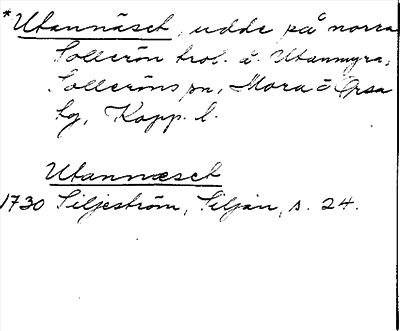 *Utannäset, udde på norra
Sollerön trol. å Utanmyra,
Solleröns sn, Mora o Orsa
tg, Kopp. l.
Utannæset
1730 Siljeström, Siljan, s. 24.